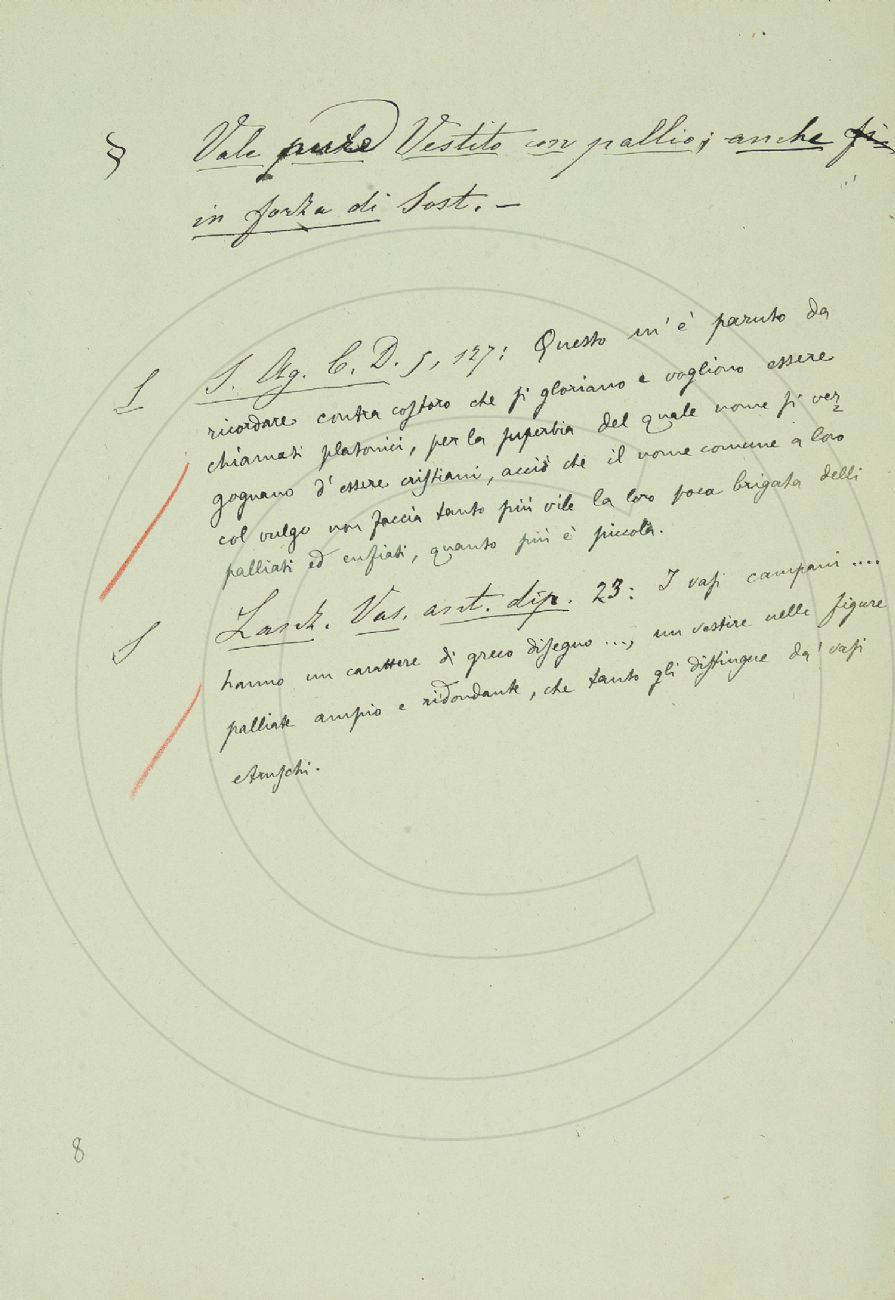 § Vale pure Vestito con pallio; anche
in forza di Sost. –
S S. Ag. C. D. 5, 127: Questo m'è paruto da
ricordare contra costoro che si gloriano e vogliono essere
chiamati platonici, per la superbia del quale nome si ver=
gognano d'essere cristiani, acciò che il nome comune a loro
col vulgo non faccia tanto più vile la loro poca brigata delli
palliati ed enfiati, quanto più è piccola.
S Lanz. Vas. ant. dip. 23: I vasi campani ....
hanno un carattere di greco disegno ..., un vestire nelle figure
palliate ampio e ridondante, che tanto gli distingue da' vasi
etruschi.
8